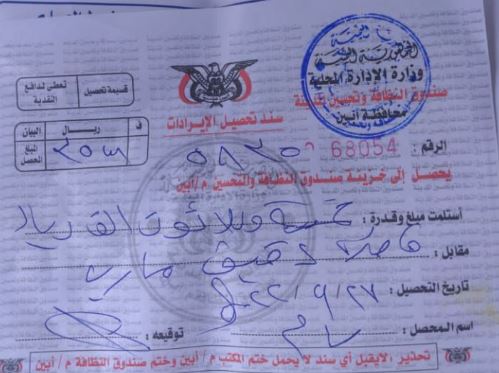 الجمهورية اليمنية
وزارة الإدارة المحلية
صندوق النظافة وتحسين المدينة
محافظة أبين
قسيمة تحصيل
تعطى لدافع النقدية
سند تحصيل الإيرادات
البيان
ريال
ف
المبلغ المحصل
الرقم :
68054
يحصل الى خزينة صندوق النظافة والتحسين م/أبين
أستلمت مبلغ وقدرة : خمسة وثلاثون الف ريال
مقابل :
تاريخ التحصيل : ٢٧/٩/٢٢
اسم المحصل :
توقيعه :
تحذير : لايقبل أي سند لا يحمل ختم المكتب م/أبين وختم صندوق النظافة م/أبين